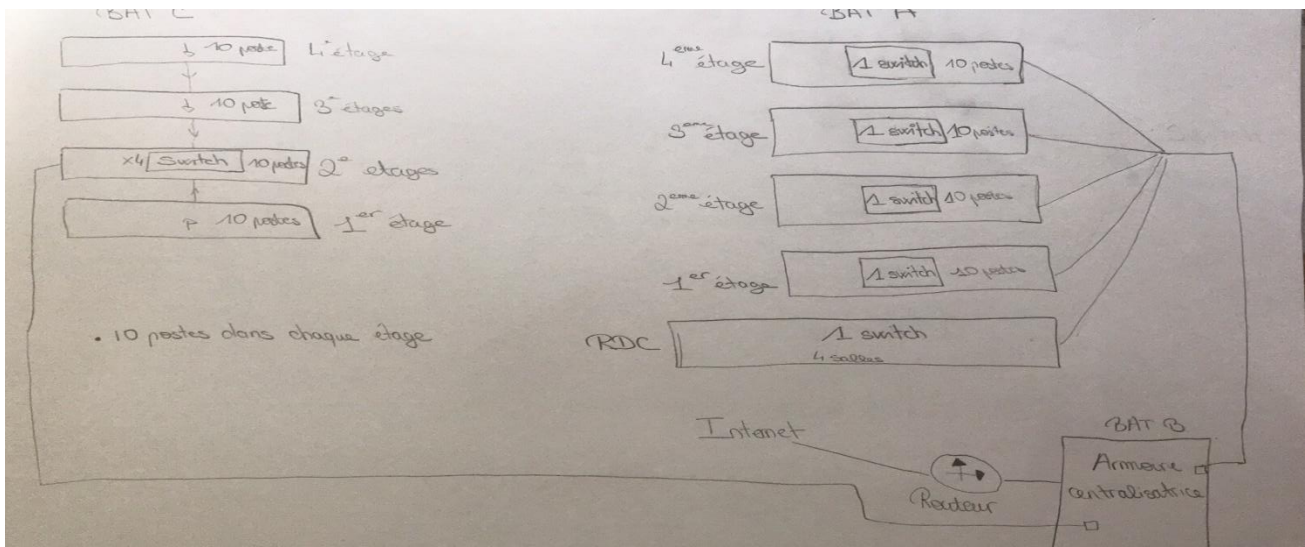 BAT C
10 poste 4° étage
10 poste 3° étages
x4 Switch 10 postes 2° etages
10 postes 1er étage
• 10 postes dans chaque étage
BAT A
4eme étage 1 switch 10 postes
3eme étage 1 switch 10 postes
2eme étage 1 switch 10 postes
1er étage 1 switch 10 postes
RDC 1 switch
4 salles
Internet
Routeur
BAT B
Armoire
centralisatrice